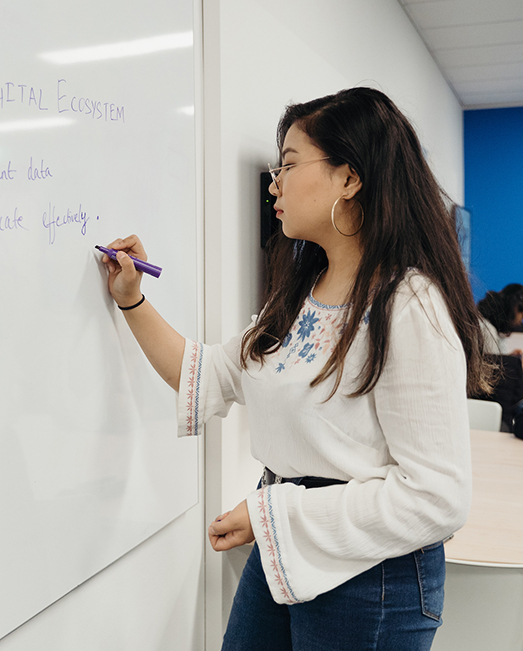 GITAL ECOSYSTEM
nt data
cate effectively.